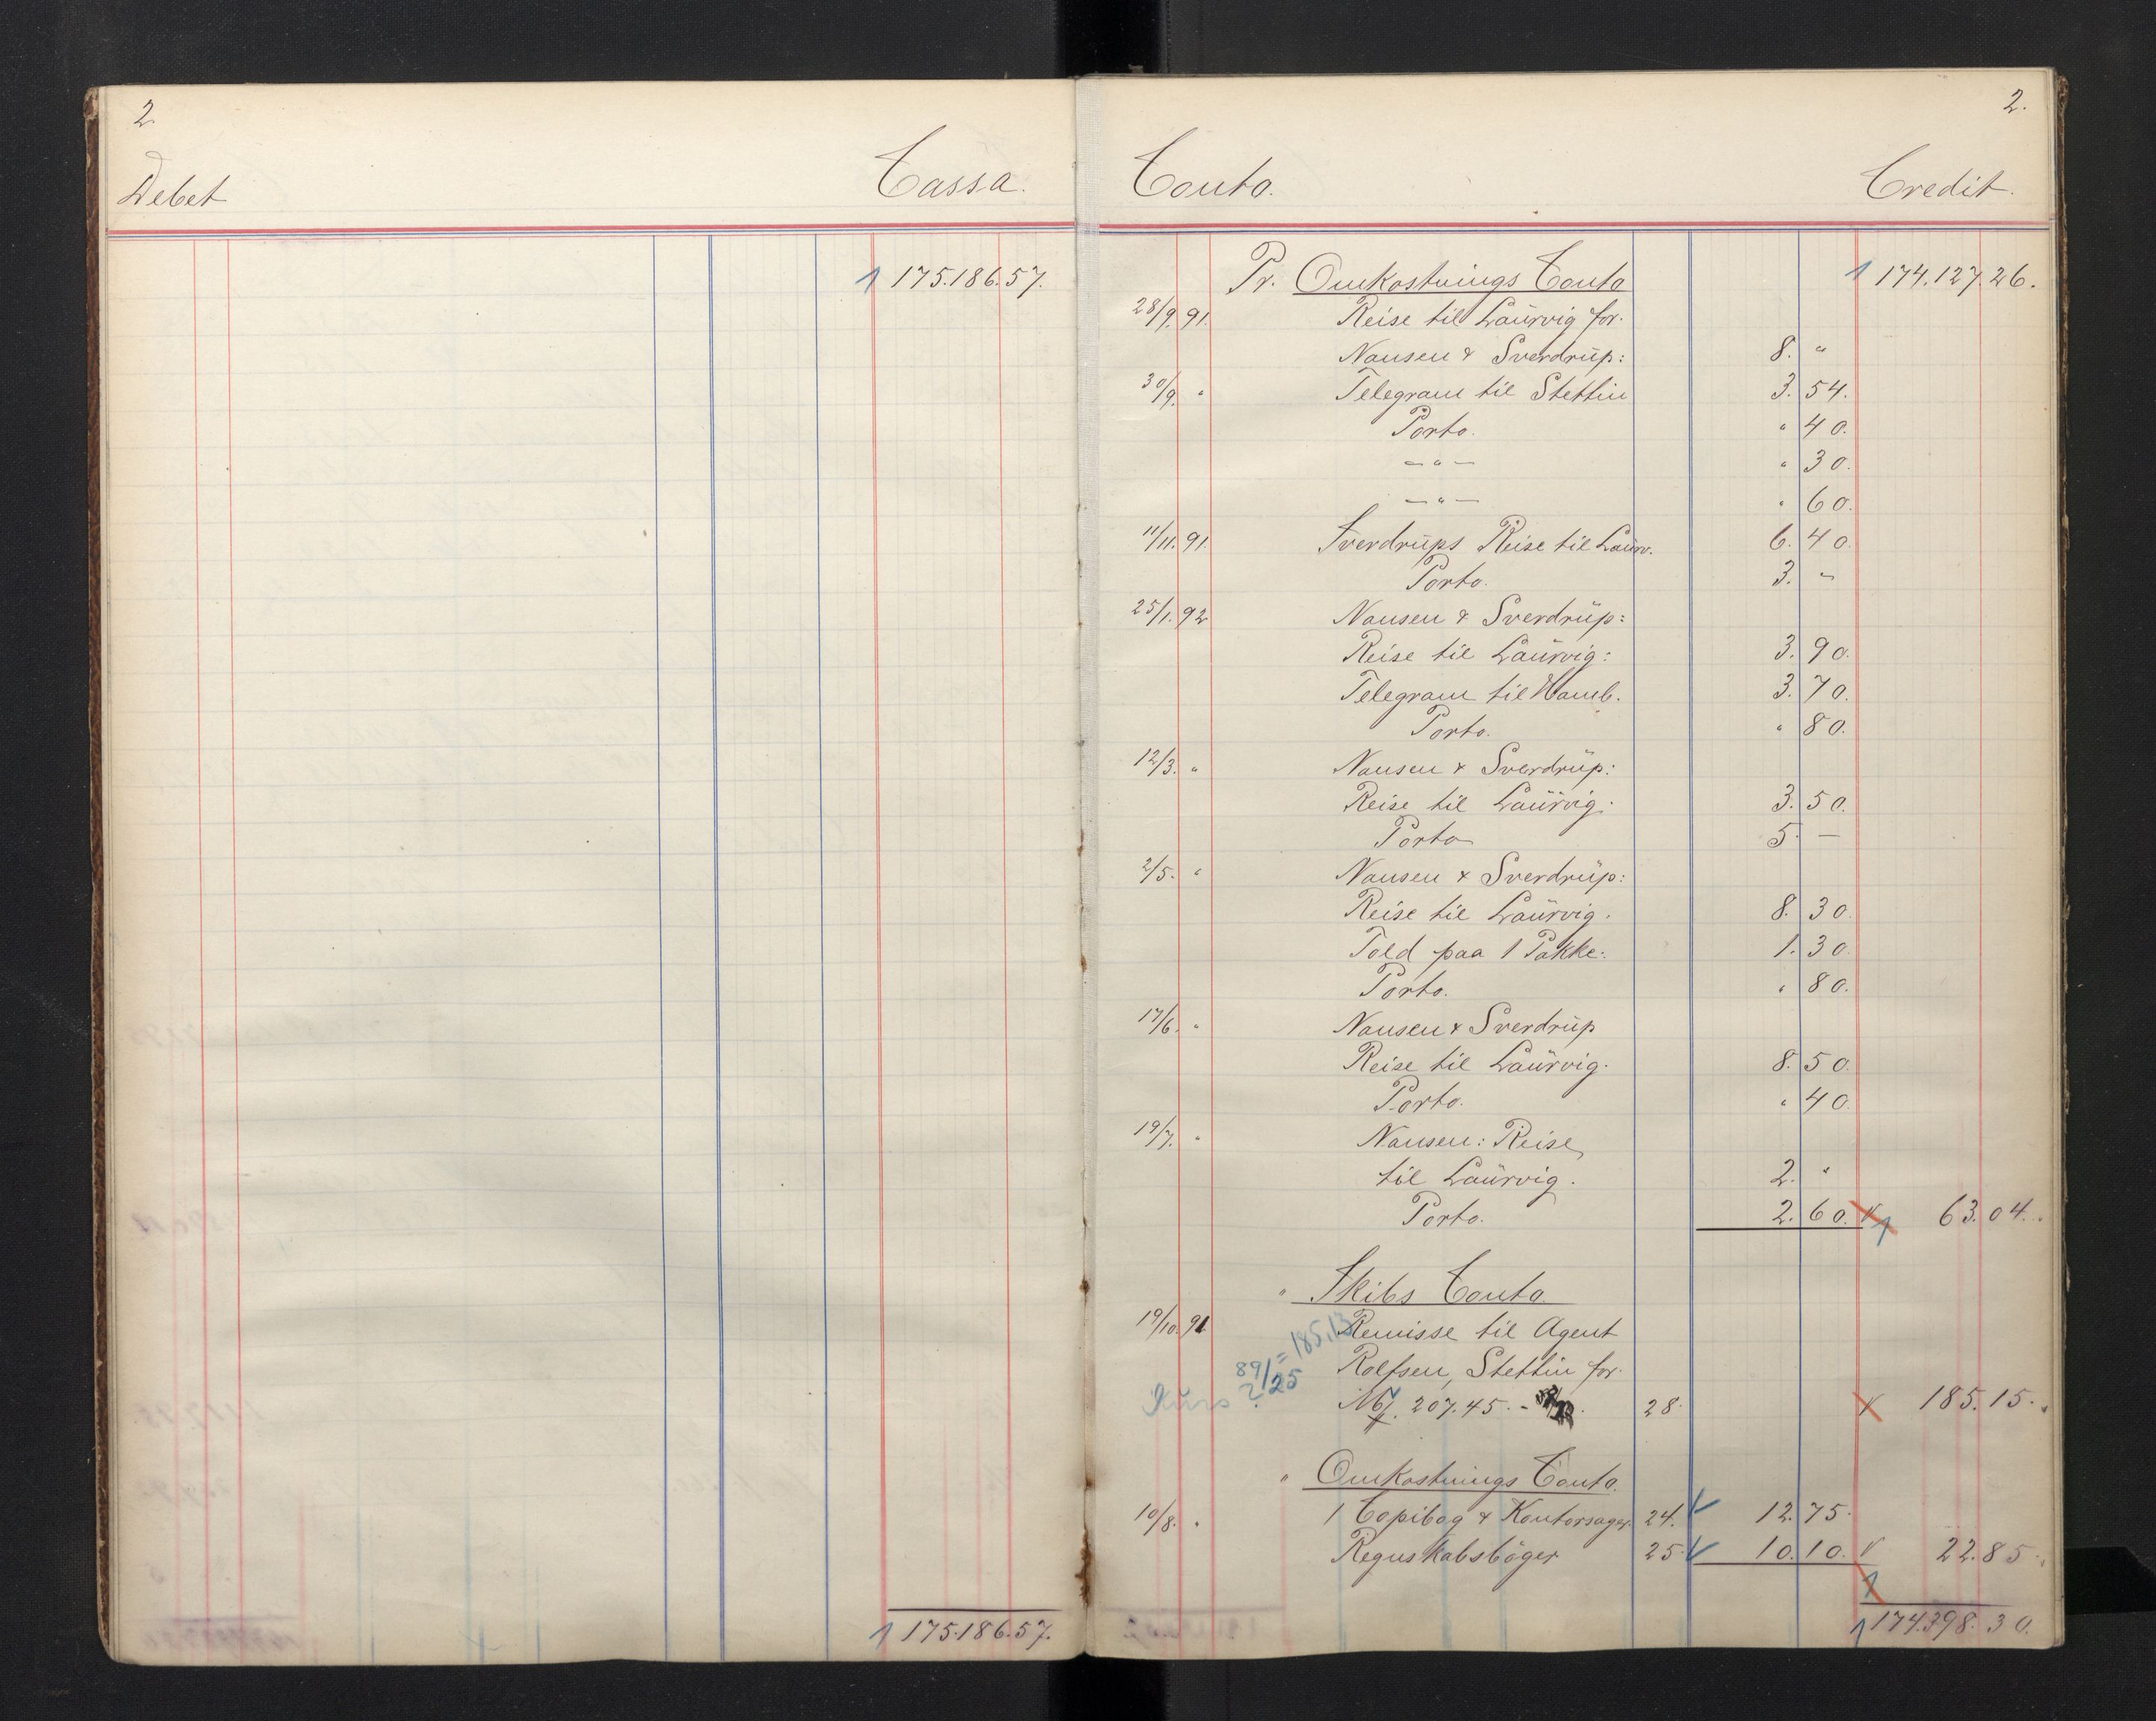 2
Debet Cassa.
1 175.186.57.
1 175.186.57.
2.
Conto. Credit.
Pr. Omkostnings Conto 1 174.127.26.
28/9. 91. Reise til Laurvig for.
Nansen & Sverdrup: 8. "
30/9. " Telegram til Stettin 3. 54.
Porto. " 40.
— " — " 30.
— " — " 60.
11/11. 91. Sverdrups Reise til Laurv. 6. 40.
Porto. 3. "
25/1. 92 Nansen & Sverdrup:
Reise til Laurvig: 3. 90.
Telegram til Hamb. 3. 70.
Porto. " 80.
12/3. " Nansen & Sverdrup:
Reise til Laurvig: 3. 50.
Porto 5. —
2/5. " Nansen & Sverdrup:
Reise til Laurvig. 8. 30.
Told paa 1 Pakke: 1. 30.
Porto. " 80.
17/6. " Nansen & Sverdrup
Reise til Laurvig. 8. 50.
Porto. " 40.
19/7. " Nansen: Reise
til Laurvig. 2. "
Porto. 2. 60. 1 63.04.
" Skibs Conto.
19/10. 91 Remisse til Agent
= 185,13
Rolfsen, Stettin for.
89/25
Kurs ? 207.45. - 28. 185.15.
" Omkostnings Conto.
10/8. " 1 Copibog & Kontorsager. 24. 12. 75.
Regnskabsbøger 25 10. 10. 22.85.
1
1 174.398.30.